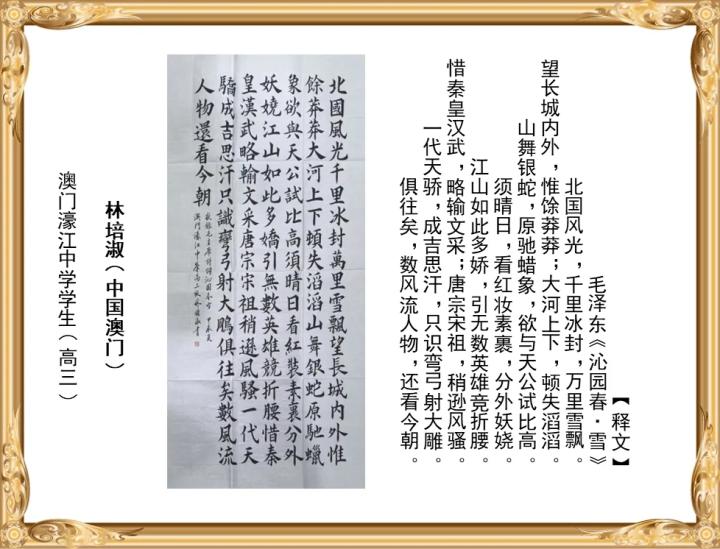 【释文】
毛泽东《沁园春·雪》
北国风光，千里冰封，万里雪飘。
望长城内外，惟馀莽莽；大河上下，顿失滔滔。
山舞银蛇，原驰蜡象，欲与天公试比高。
须晴日，看红妆素裹，分外妖娆。
江山如此多娇，引无数英雄竞折腰。
惜秦皇汉武，略输文采；唐宗宋祖，稍逊风骚。
一代天骄，成吉思汗，只识弯弓射大雕。
俱往矣，数风流人物，还看今朝。
北國風光千里冰封萬里雪飄望長城內外惟
餘莽莽大河上下頓失滔滔山舞銀蛇原馳蠟
象欲與天公試比高須晴日看紅裝素裹分外
妖嬈江山如此多嬌引無數英雄競折腰惜秦
皇漢武略輸文采唐宗宋祖稍遜風騷一代天
驕成吉思汗只識彎弓射大鵰俱往矣數風流
人物還看今朝
澳門濠江中學高三
林培淑（中国澳门）
澳门濠江中学学生（高三）